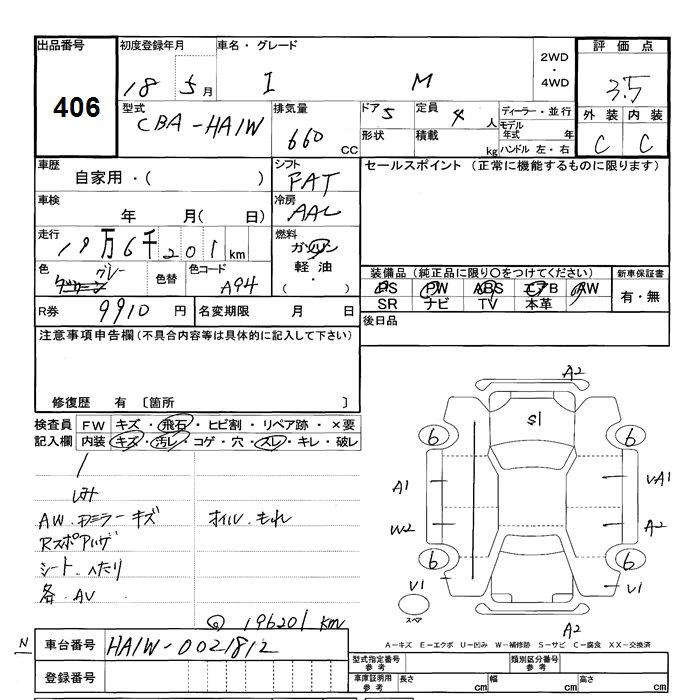 出品番号 初度登録年月 車名・グレード 2WD・4WD 評価点
406 18 5月 I M 3.5
型式 CBA-HA1W 排気量 660 CC ドア 5 定員 4人 ディーラー・並行
形状 積載 kg モデル年式 年 ハンドル 左・右
外装 内装
C C
車歴 自家用・( ) シフト FAT セールスポイント (正常に機能するものに限ります)
車検 年 月( 日) 冷房 AAC
走行 19万6千201km 燃料 ガソリン 軽油・( )
色 グレー 色替 色コード A94
装備品 (純正品に限り○をつけてください) 新車保証書
PS PW ABS エアB AW 有・無
SR ナビ TV 本革
R券 9910円 名変期限 月 日 後日品
注意事項申告欄(不具合内容等は具体的に記入して下さい)
修復歴 有 〔箇所
検査員 FW キズ・飛石・ヒビ割・リペア跡・×要
記入欄 内装 キズ・汚レ・コゲ・穴・スレ・キレ・破レ
AW.ドミラーキズ オイルもれ
シートへたり
各AV
196201 km
A2
S1
6 6
A1 VA1
W2 A2
6 6
V1 V1
スペア
A2
A-キズ E-エクボ U-凹み W-補修跡 S-サビ C-腐食 XX-交換済
N 車台番号 HA1W-0021812
登録番号
型式指定番号 参考 類別区分番号 参考
車庫証明用 参考 長さ cm 幅 cm 高さ cm